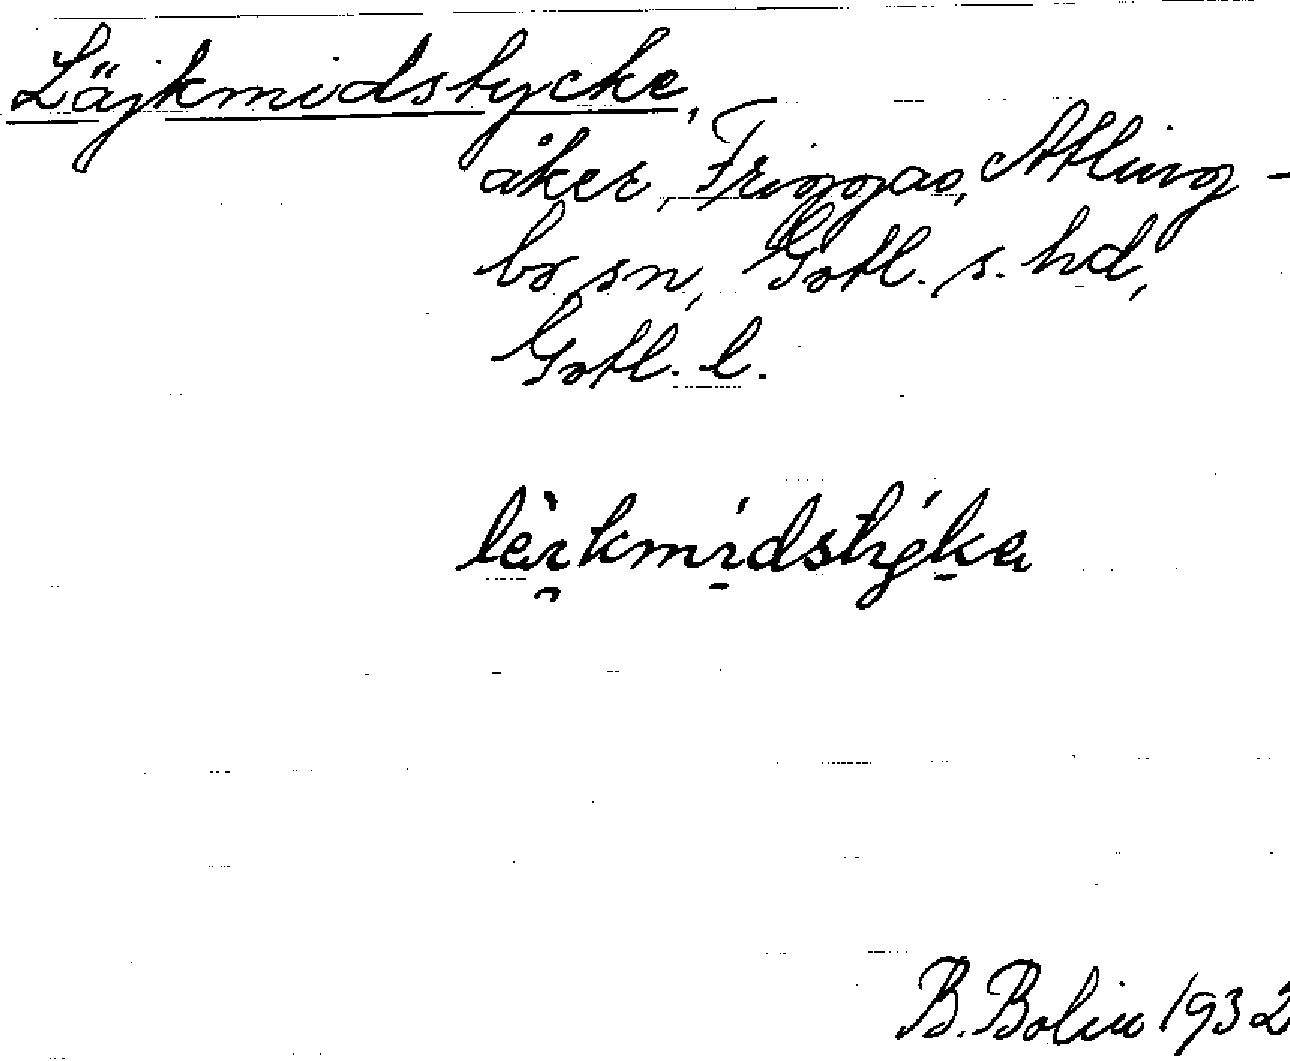 Läjkmidstycke,
åker, Friggas, Atling-
bo sn, Gotl. s. hd,
Gotl. l.
lèi̯kmìdstýka
B. Bolin 1932